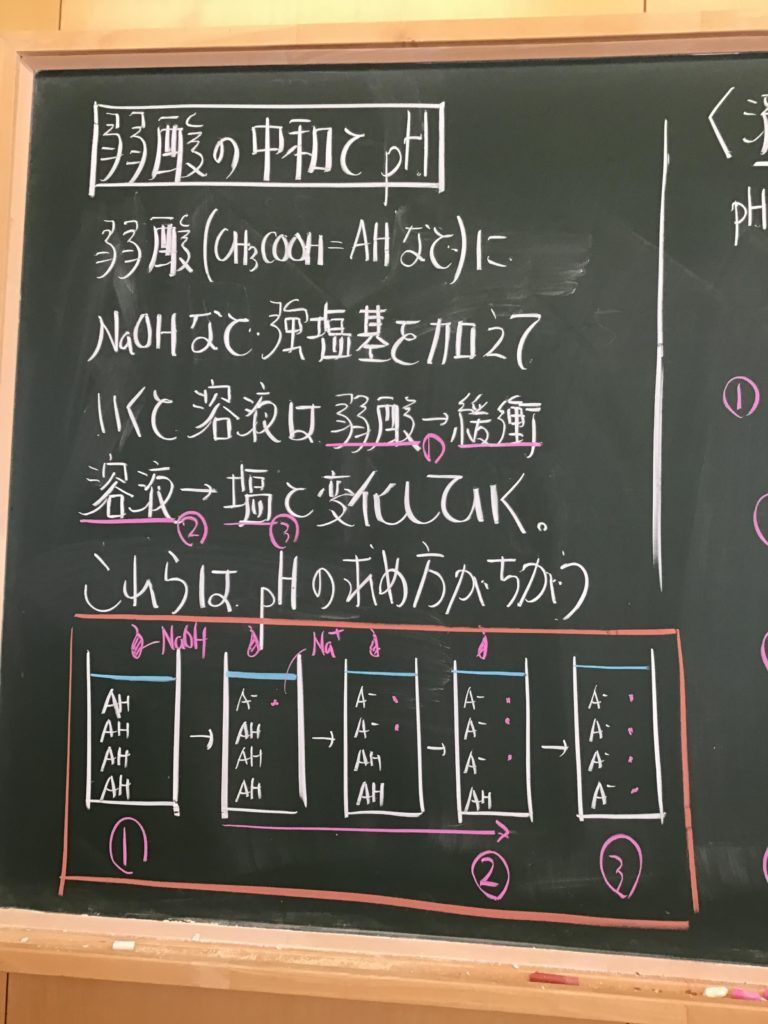 弱酸の中和とpH
弱酸(CH3COOH=AHなど)に
NaOHなど強塩基を加えて
いくと溶液は弱酸→緩衝
①
溶液→塩と変化していく。
② ③
これらはpHの求め方がちがう
NaOH Na⁺
AH A⁻ A⁻ A⁻ A⁻
AH → AH → A⁻ → A⁻ → A⁻
AH AH AH A⁻ A⁻
AH AH AH AH A⁻
① ② ③
〈
pH
①